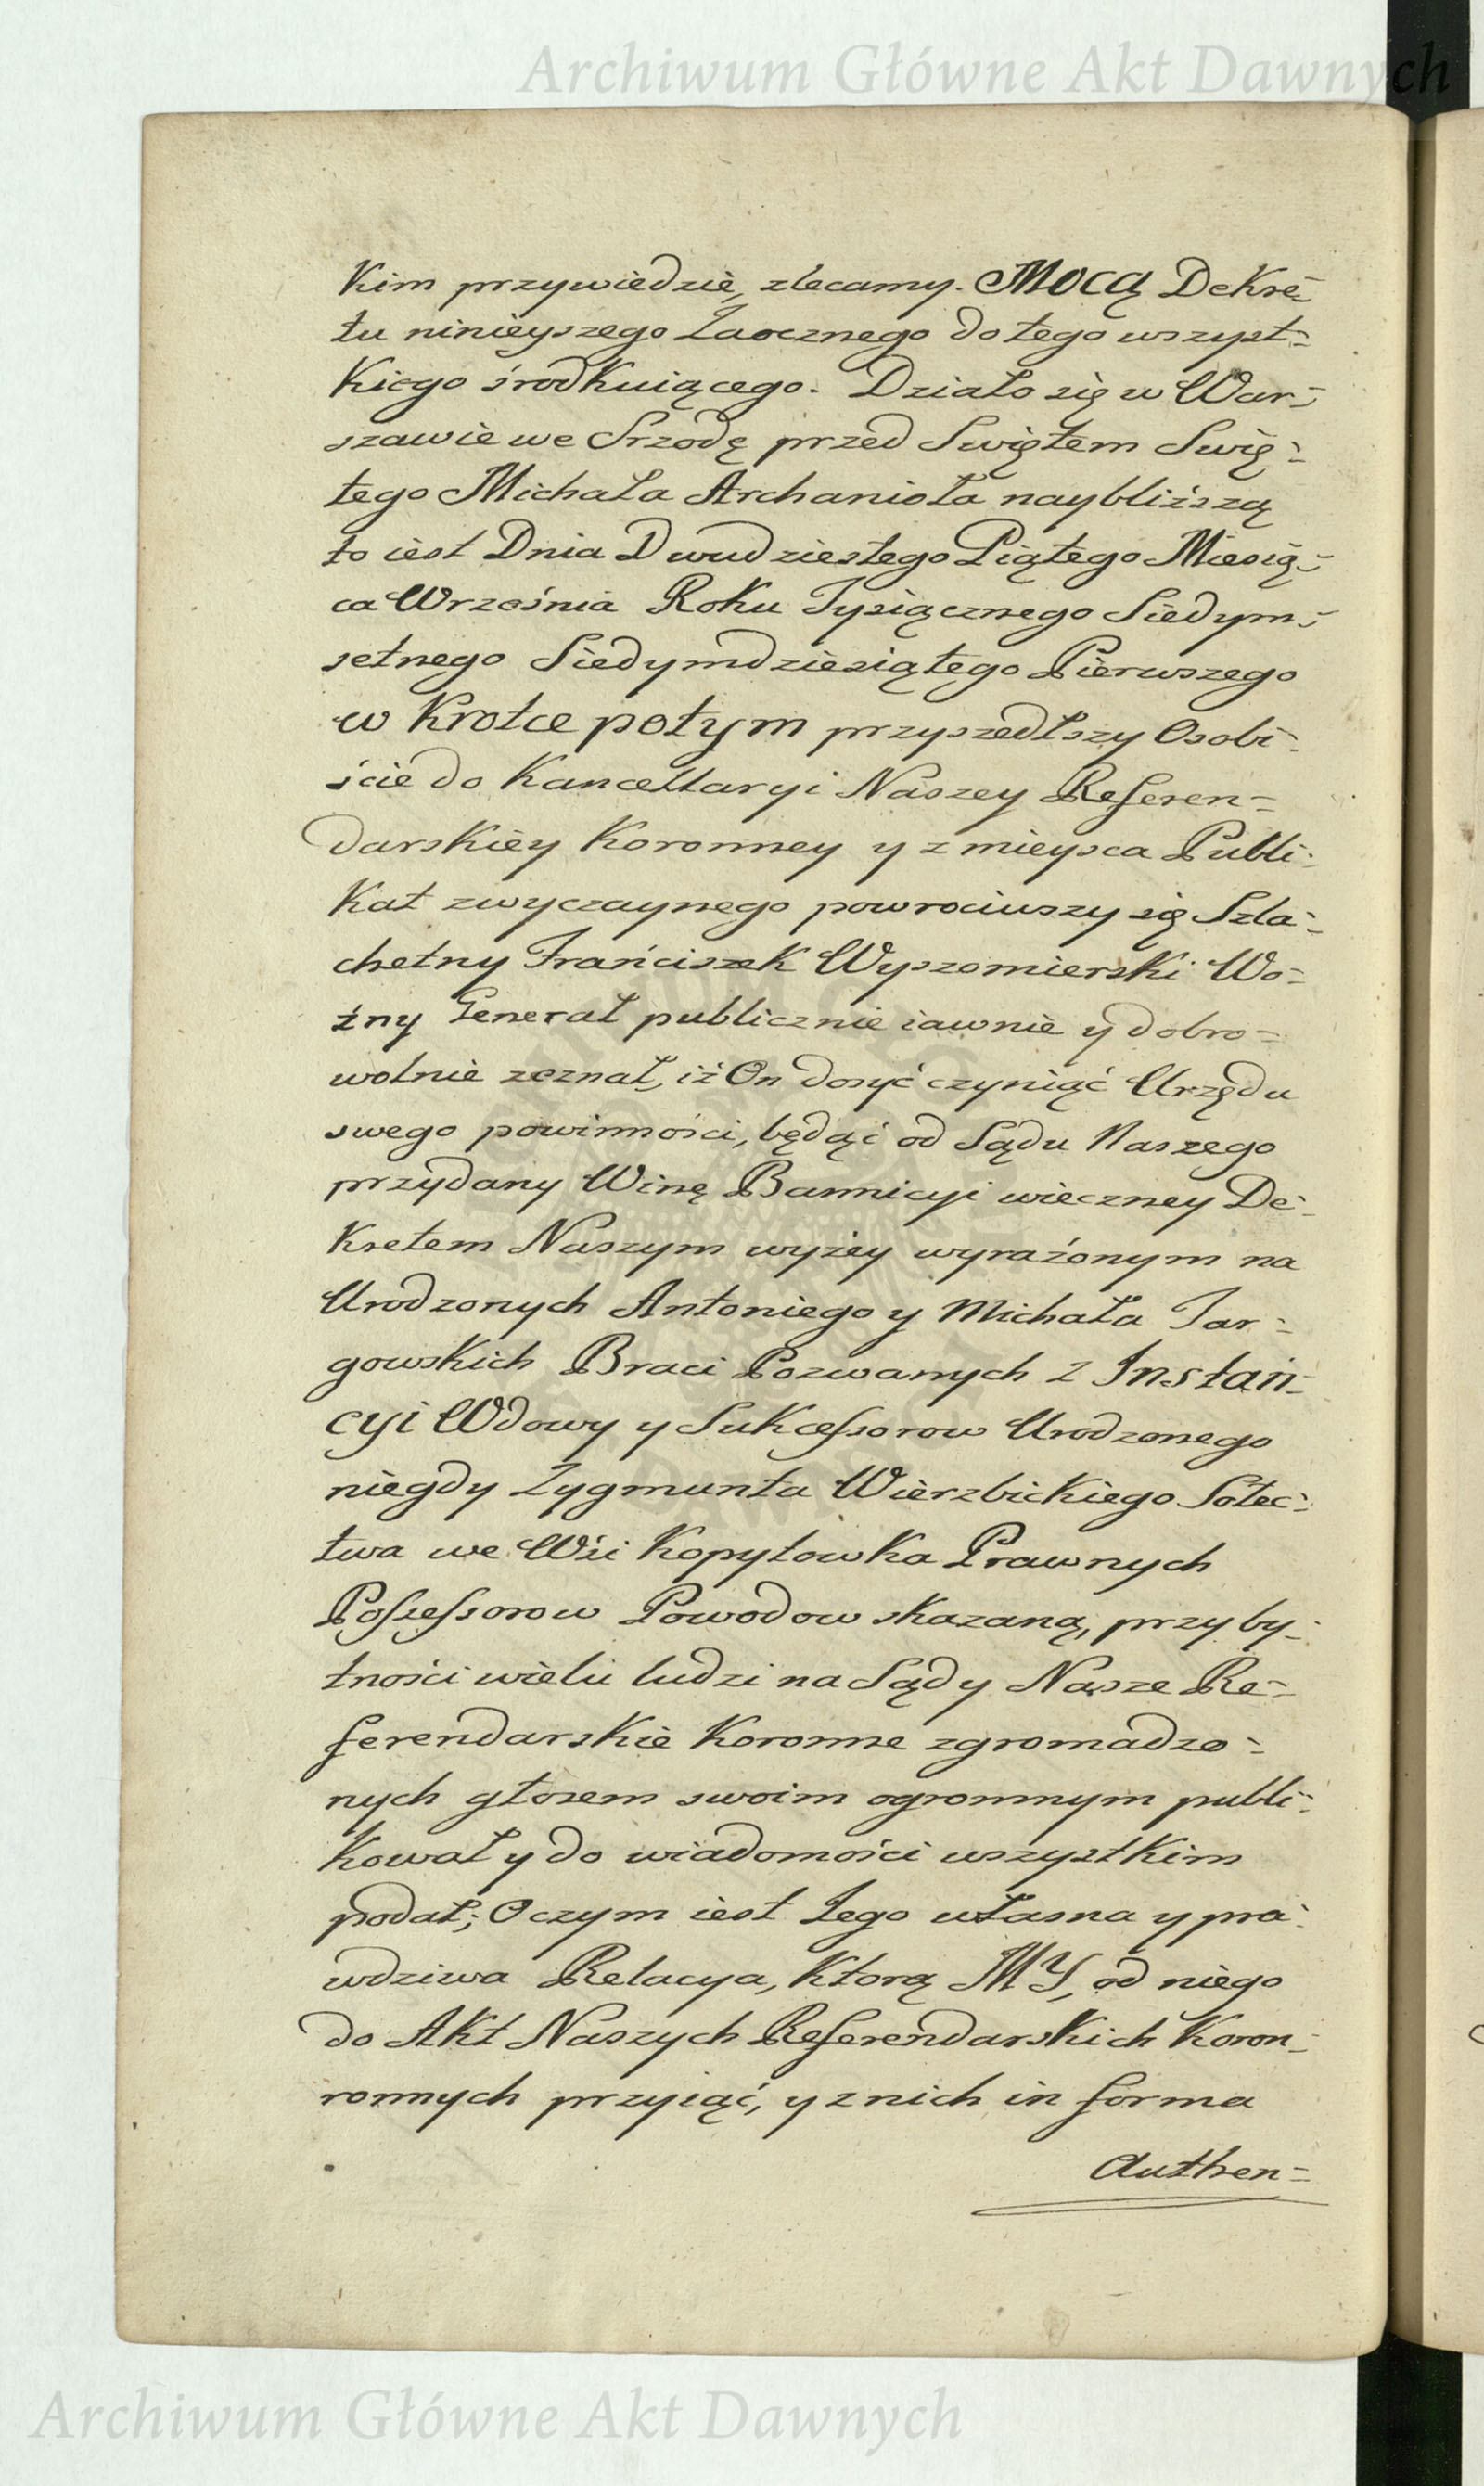 Archiwum Główne Akt Dawnych
kim przywiedzie, zlecamy. Mocą Dekre-
tu ninieyszego Zaocznego do tego wszyst-
kiego srodkuiącego. Działo się w War-
szawie we Srzodę przed Swiętem Swię-
tego Michała Archanioła naybliższą
to iest Dnia Dwudziestego Piątego Miesią-
ca Września Roku Tysiącznego Siedym-
setnego Siedymdziesiątego Pierwszego
w krotce potym przyszedłszy Osobi-
ście do Kancellaryi Naszey Referen-
darskiey Koronney y z mieysca Publi-
kat zwyczaynego powrociwszy się Szla-
chetny Franciszek Wyszomierski Wo-
źny Generał publicznie iawnie y dobro-
wolnie zeznał, iż On dosyć czyniąć Urzędu
swego powinności, będąć od Sądu Naszego
przydany Winę Bannicyi wieczney De-
kretem Naszym wyżey wyrażonym na
Urodzonych Antoniego y Michała Jar-
gowskich Braci Pozwanych z Instan-
cyi Wdowy y Sukcessorow Urodzonego
niegdy Zygmunta Wierzbickiego Sołec-
twa we Wśi Kopytowka Prawnych
Possessorow Powodow skazaną, przy by-
tności wielu ludzi na Sądy Nasze Re-
ferendarskie Koronne zgromadzo-
nych głosem swoim ogromnym publi-
kował y do wiadomości wszystkim
podał; O czym iest Jego własna y pra-
wdziwa Relacya, ktorą MY, od niego
do Akt Naszych Referendarskich Koron-
ronnych przyiąć, y z nich in forma
Authen-
Archiwum Główne Akt Dawnych